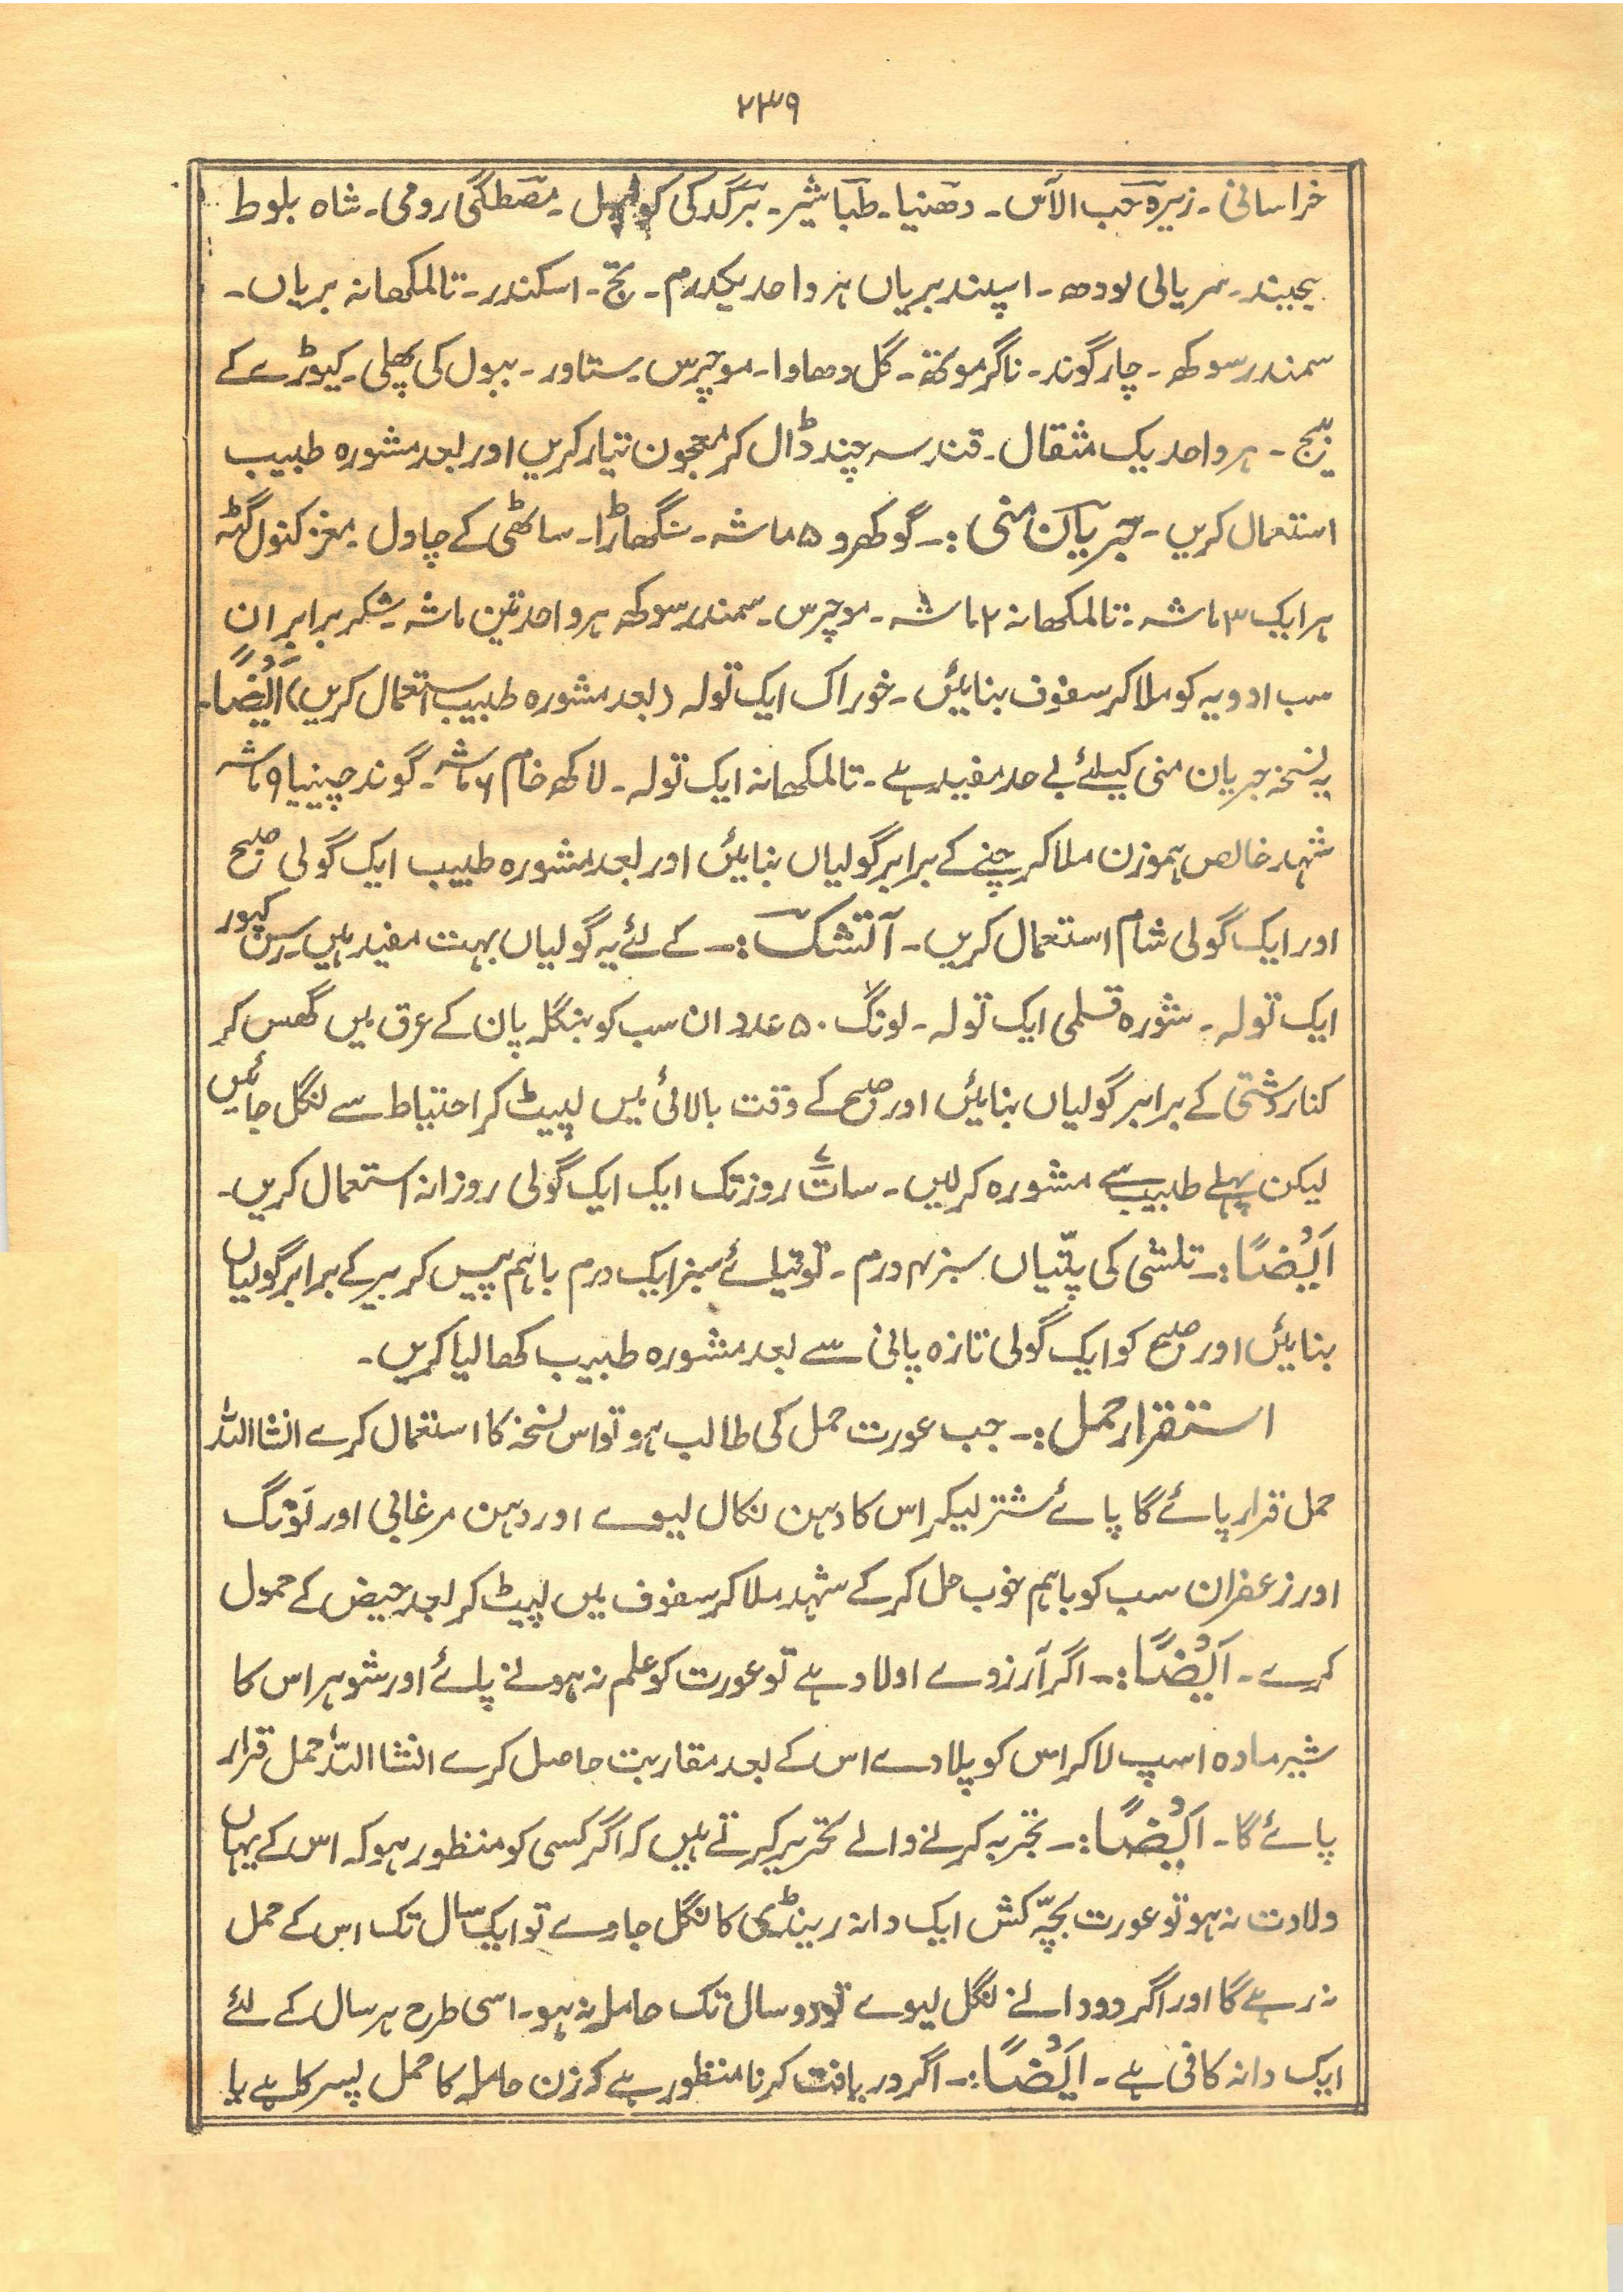 ۲۳۹
خراسانی۔ زیرہ حب الآس۔ دھنیا۔ طباشیر۔ برگد کی کونپل۔ مصطگی رومی۔ شاہ بلوط
بیجبند۔ سریالی لودھ۔ اسپند بریاں ہر واحد یکدرم۔ تج۔ اسکندر۔ تالمکھانہ بریاں۔
سمندر سوکھ۔ چار گوند۔ ناگر موتھہ۔ گل دھاوا۔ موچرس۔ ستاور۔ ببول کی پھلی۔ کیوڑے کے
بیج۔ ہر واحد یک مثقال۔ قند سہ چند ڈال کر معجون تیار کریں اور بعد مشورہ طبیب
استعمال کریں۔ جریان منی:۔ گوکھرو ۵ ماشہ۔ سنگھاڑا۔ ساٹھی کے چاول۔ مغز کنول گٹہ
ہر ایک ۳ ماشہ۔ تالمکھانہ ۲ ماشہ۔ موچرس۔ سمندر سوکھ ہر واحد تین ماشہ۔ شکر برابر ان
سب ادویہ کو ملا کر سفوف بنائیں۔ خوراک ایک تولہ (بعد مشورہ طبیب استعمال کریں) اَیْضًا۔
یہ نسخہ جریان منی کیلئے بے حد مفید ہے۔ تالمکھانہ ایک تولہ۔ لاکھ خام ۶ ماشہ۔ گوند چینیا ۹ ماشہ
شہد خالص ہموزن ملا کر چنے کے برابر گولیاں بنائیں اور بعد مشورہ طبیب ایک گولی صبح
اور ایک گولی شام استعمال کریں۔ آتشک:۔ کے لئے یہ گولیاں بہت مفید ہیں۔ رس کپور
ایک تولہ۔ شورہ قلمی ایک تولہ۔ لونگ ۵۰ عدد ان سب کو بنگلہ پان کے عرق میں گھس کر
کنار دشتی کے برابر گولیاں بنائیں اور صبح کے وقت بالائی میں لپیٹ کر احتیاط سے نگل جائیں
لیکن پہلے طبیب سے مشورہ کر لیں۔ سات ۷ روز تک ایک ایک گولی روزانہ استعمال کریں۔
اَیْضًا:۔ تلشی کی پتّیاں سبز ۴ درم۔ توتیائے سبز ایک درم باہم پیس کر بیر کے برابر گولیاں
بنائیں اور صبح کو ایک گولی تازہ پانی سے بعد مشورہ طبیب کھالیا کریں۔
استقرار حمل:۔ جب عورت حمل کی طالب ہو تو اس نسخہ کا استعمال کرے انشااللہ
حمل قرار پائے گا پائے شتر لیکر اس کا دہن نکال لیوے اور دہن مرغابی اور لَونگ
اور زعفران سب کو باہم خوب حل کر کے شہد ملا کر سفوف میں لپیٹ کر بعد حیض کے حمول
کرے۔ اَیْضًا:۔ اگر آرزوے اولاد ہے تو عورت کو علم نہ ہونے پائے اور شوہر اس کا
شیر مادہ اسپ لا کر اس کو پلا دے اس کے بعد مقاربت حاصل کرے انشااللہ حمل قرار
پائے گا۔ اَیْضًا:۔ تجربہ کرنے والے تحریر کرتے ہیں کہ اگر کسی کو منظور ہو کہ اس کے یہاں
ولادت نہ ہو تو عورت بچّہ کش ایک دانہ رینڈی کا نگل جاوے تو ایک سال تک اس کے حمل
نہ رہے گا اور اگر دو دانے نگل لیوے تو دو سال تک حاملہ نہ ہو۔ اسی طرح ہر سال کے لئے
ایک دانہ کافی ہے۔ اَیْضًا:۔ اگر دریافت کرنا منظور ہے کہ زن حاملہ کا حمل پسر کا ہے یا